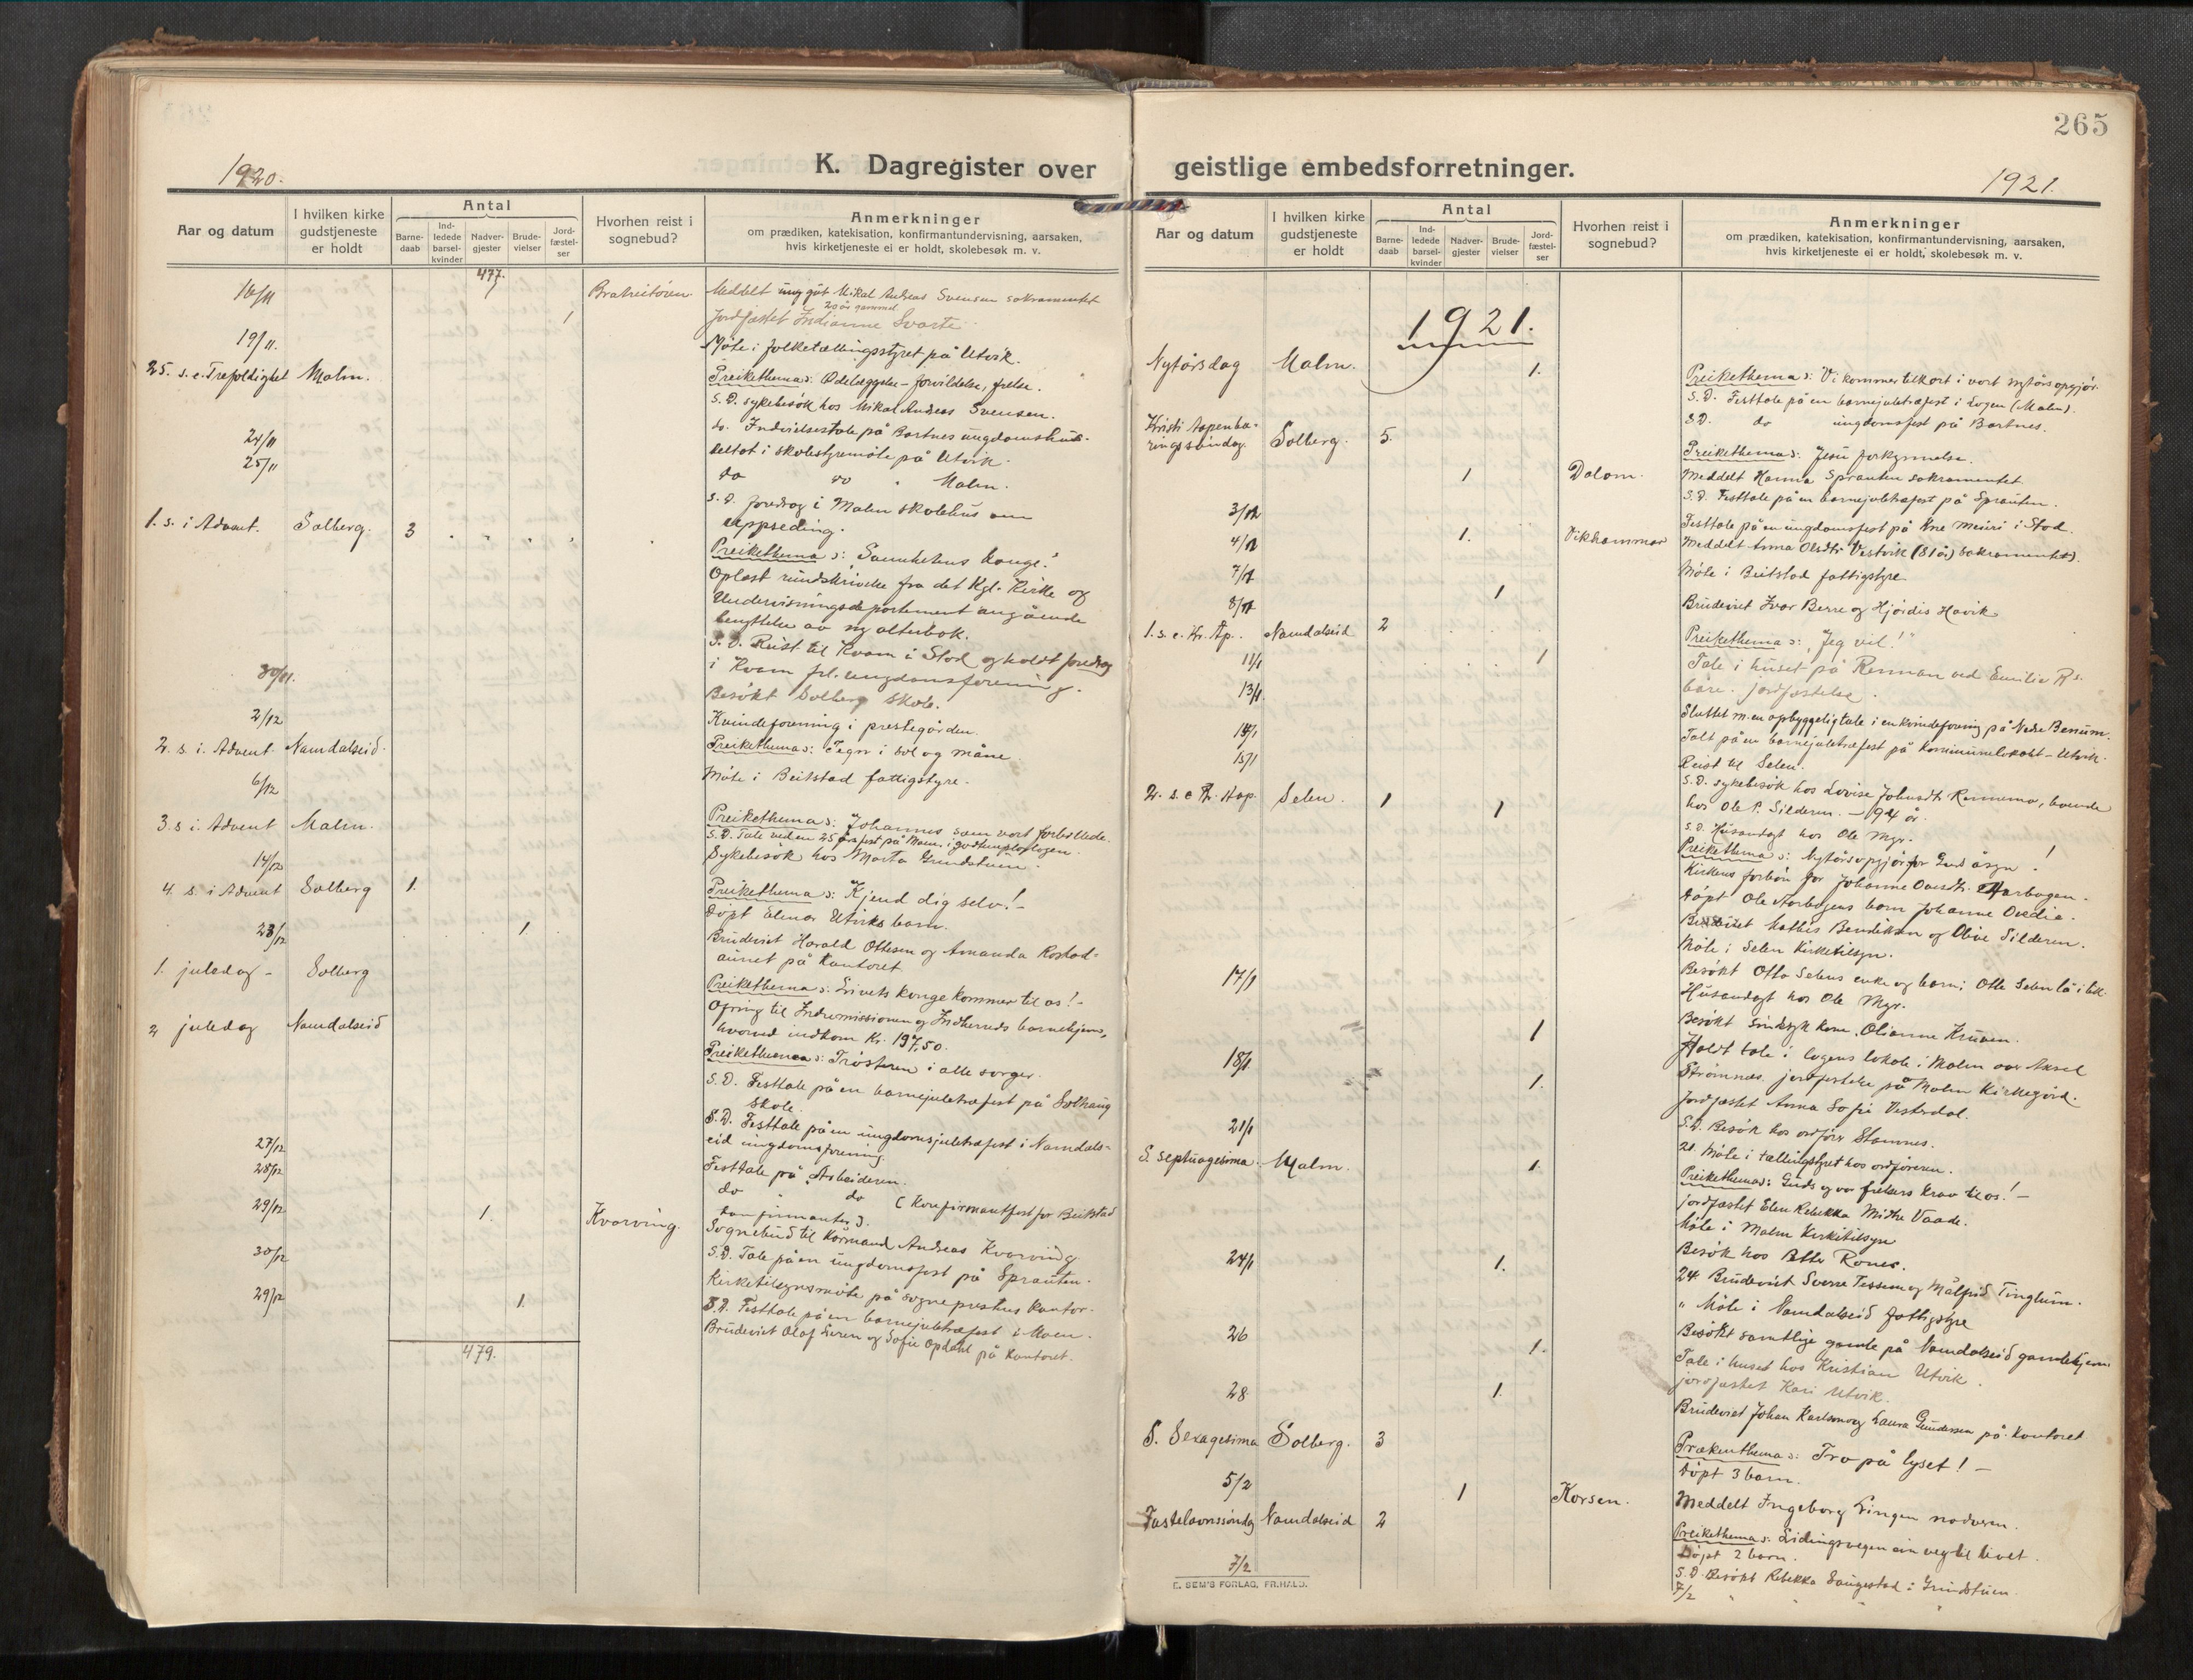 265
1920.
K. Dagregister over
geistlige embedsforretninger.
1921.
Aar og datum
I hvilken kirke gudstjeneste er holdt
Antal
Barnedaab
Indledede barselkvinder
Nadvergjester
Brudevielser
Jordfæstelser
Hvorhen reist i sognebud?
Anmerkninger
om prædiken, katekisation, konfirmantundervisning, aarsaken,
hvis kirketjeneste ei er holdt, skolebesøk m. v.
477.
16/11 Meddelt ung gut Mikal Andreas Svensen sakramentet
20 år gammel
1 Jordfæstet Indianne Svarte
19/11. Møte i folketællingsstyret på Utvik.
25. s. e. Trefoldighet Malm. Preikethema: Ødelæggelse – forvildelse, frelse.
S. D. sykebesøk hos Mikal Andreas Svensen.
do. Indvielsestale på Bartnes ungdomshus.
24/11 deltat i skolestyremøte på Utvik.
25/11 do do " Malm.
S. D. foredrag i Malm skolehus om
1. s. i Advent. Solberg. 3
Preikethema: Sannhetens konge!
Oplæst rundskrivelse fra det Kgl. Kirke og
Undervisningsdepartement angående
benyttelse av ny alterbok.
S. D. Reist til Kvam i Stod og holdt foredrag
i Kvam frl. ungdomsforening.
30/11. Besøkt Solberg skole.
2/12 Kvindeforening i prestegården.
2. s. i. Advent Namdalseid. Preikethema: Tegn i sol og måne
6/12 Møte i Beitstad fattigstyre.
3. s i. Advent Malm. Preikethema: Johannes som vort forbillede.
S. D. Tale ved en 25 årsfest på Malm i godtemplarlogen.
14/12 Sykebesøk hos Marta Grundstuen.
4. s. i Advent Solberg 1. Preikethema: Kjend dig selv! –
Døpt Elmar Utviks barn.
23/12 1 Brudeviet Harald Ottesen og Amanda Rostad-
aunet på kontoret.
1. juledag – Solberg Preikethema: Livets konge kommer til os! –
Ofring til Indremissionen og Indherreds barnehjem,
hvorved indkom Kr. 197.50.
2 juledag Namdalseid Preikethema: Trøsteren i alle sorger.
S. D. Festtale på en barnejuletræfest på Solhaug
skole.
S. D. Festtale på en ungdomsjuletræfest i Namdals-
eid ungdomsforening.
27/12 Festtale på "Arbeideren.
28/12 do " do (Konfirmantfest for Beitstad
konfirmanter).
29/12 1. Kvarving. Sognebud til Kårmand Andreas Kvarving
S. D. Tale på en ungdomsfest på Sprauten.
30/12 Kirketilsynsmøte på sogneprestens kontor.
S. D. Festtale på en barnejuletræfest i Moen.
29/12 1. Brudeviet Olaf Luren og Sofie Opdahl på kontoret.
479.
Aar og datum
I hvilken kirke gudstjeneste er holdt
Antal
Barnedaab
Indledede barselkvinder
Nadvergjester
Brudevielser
Jordfæstelser
Hvorhen reist i sognebud?
Anmerkninger
om prædiken, katekisation, konfirmantundervisning, aarsaken,
hvis kirketjeneste ei er holdt, skolebesøk m. v.
1921.
Nytårsdag Malm. 1. Preikethema: Vi kommer tilkort i vort nytårsopgjør.
S. D. Festtale på en barnejuletræfest i Logen (Malm).
S D. do ungdomsfest på Bartnes.
Kristi Aapenba-
ringssøndag. Solberg. 5. Preikethema: Jesu forkynnelse.
1 Dalom. Meddelt Hanna Sprauten sakramentet.
S. D. Festtale på en barnejuletræfest på Sprauten.
3/1 Festtale på en ungdomsfest på Kne meieri i Stod.
4/1 1. Vikhammar Meddelt Anna Olsdtr Vestvik (81 år) sakramentet.
7/1 Møte i Beitstad fattigstyre
8/1 1 Brudeviet Ivar Berre og Hjørdis Høvik
1. s. e. Kr. Åp. Namdalseid 2 Preikethema: "Jeg vil!"
11/1 1 Tale i huset på Rennan ved Emilie Rs.
båre. jordfæstelse.
13/1 Sluttet m. en opbyggelig tale i en kvindeforening på Nedre Benum.
14/1 Talt på en barnejuletræfest på Kommunelokalet – Utvik.
15/1 Reist til Selen.
S. D. sykebesøk hos Lovise Johnsdtr Rennemo, boende
hos Ole P. Silderen. – 94 år
S. D. Husandagt hos Ole Myr.
2. s. e Kr. Aap. Selen. 1 1 Preikethema: Nytårsopgjør for Guds åsyn!
Kirkens forbøn for Johanne Olsdtr. Aarbogen.
Døpt Ole Aarbogens barn Johanne Oledie.
Brudeviet Mathis Bendiksen og Oline Silderen.
Møte i Selen Kirketilsyn.
17/1 Besøkt Otto Selens enke og barn; Otto Selen lå i lik.
Husandagt hos Ole Myr.
Besøkt sindssyk kone, Olianne Kruven.
1 Holdt tale i logens lokale i Malm over Aksel
18/1 Strømnes. jordfestelse på Malm kirkegård.
1. Jordfæstet Anna Sofie Vesterdal.
S. D. Besøk hos ordfører Stamnes.
21/1 21. Møte i tællingstyret hos ordføreren.
S. Septuagesima. Malm. 1. Preikethema: Guds og vor frelsers krav til os! –
jordfæstet Elen Rebekka Mithe Vaade.
Møte i Malm Kirketilsyn
Besøk hos Petter Rones.
24/1 1. 24. Brudeviet Sverre Tessem og Målfrid Tinglum.
" Møte i Namdalseid fattigstyre
Besøkt samtlige gamle på Namdalseid gamlehjem
26 1. Tale i huset hos Kristian Utvik.
jordfæstet Kari Utvik.
28 1. Brudeviet Johan Karlsen og Laura Gundersen på kontoret
S. Sexagesima Solberg. 3 Prækenthema: Tro på lyset! –
Døpt 3 barn.
5/2 1 Korsen. Meddelt Ingeborg Lingen nadveren.
Fastelavnssøndag Namdalseid 2 Preikethema: Lidingsvegen ein veg til livet.
Døpt 2 barn.
S. D. Besøkt Rebekka Saugestad i Grundstuen.
7/2
7/2
E. SEM'S FORLAG, FR.HALD.